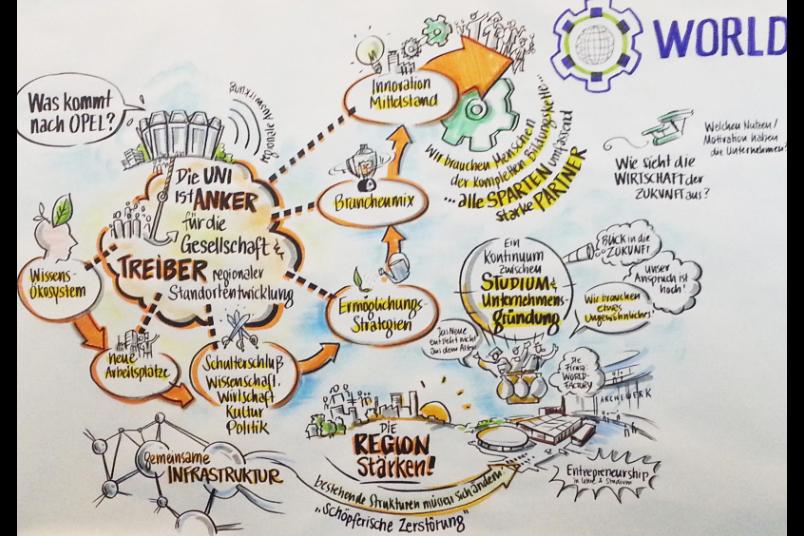 WORLD
Was kommt
nach OPEL?
regionale Auswirkung
Innovation
Mittelstand
Welchen Nutzen/
Motivation haben
die Unternehmen?
Wie sieht die
WIRTSCHAFT der
ZUKUNFT aus?
Wir brauchen Menschen
der kompletten Bildungskette...
...alle SPARTEN umfassend
starke PARTNER
Die UNI
ist ANKER
für die
Gesellschaft &
TREIBER regionaler
Standortentwicklung
Branchenmix
Wissens-
ökosystem
Ermöglichungs-
Strategien
Ein
Kontinuum
zwischen
STUDIUM &
Unternehmens-
gründung
BLICK in die
ZUKUNFT
unser
Anspruch ist
hoch!
Wir brauchen
etwas
Ungewöhnliches!
Das Neue
entsteht nicht
aus dem Alten
neue
Arbeitsplätze
Schulterschluß
Wissenschaft,
Wirtschaft
Kultur
Politik
Die
Firma
WORLD-
FACTORY
DIE
REGION
Stärken!
gemeinsame
INFRASTRUKTUR
bestehende Strukturen müssen sich ändern!
"Schöpferische Zerstörung"
Entrepreneurship
in Lehre & Studium